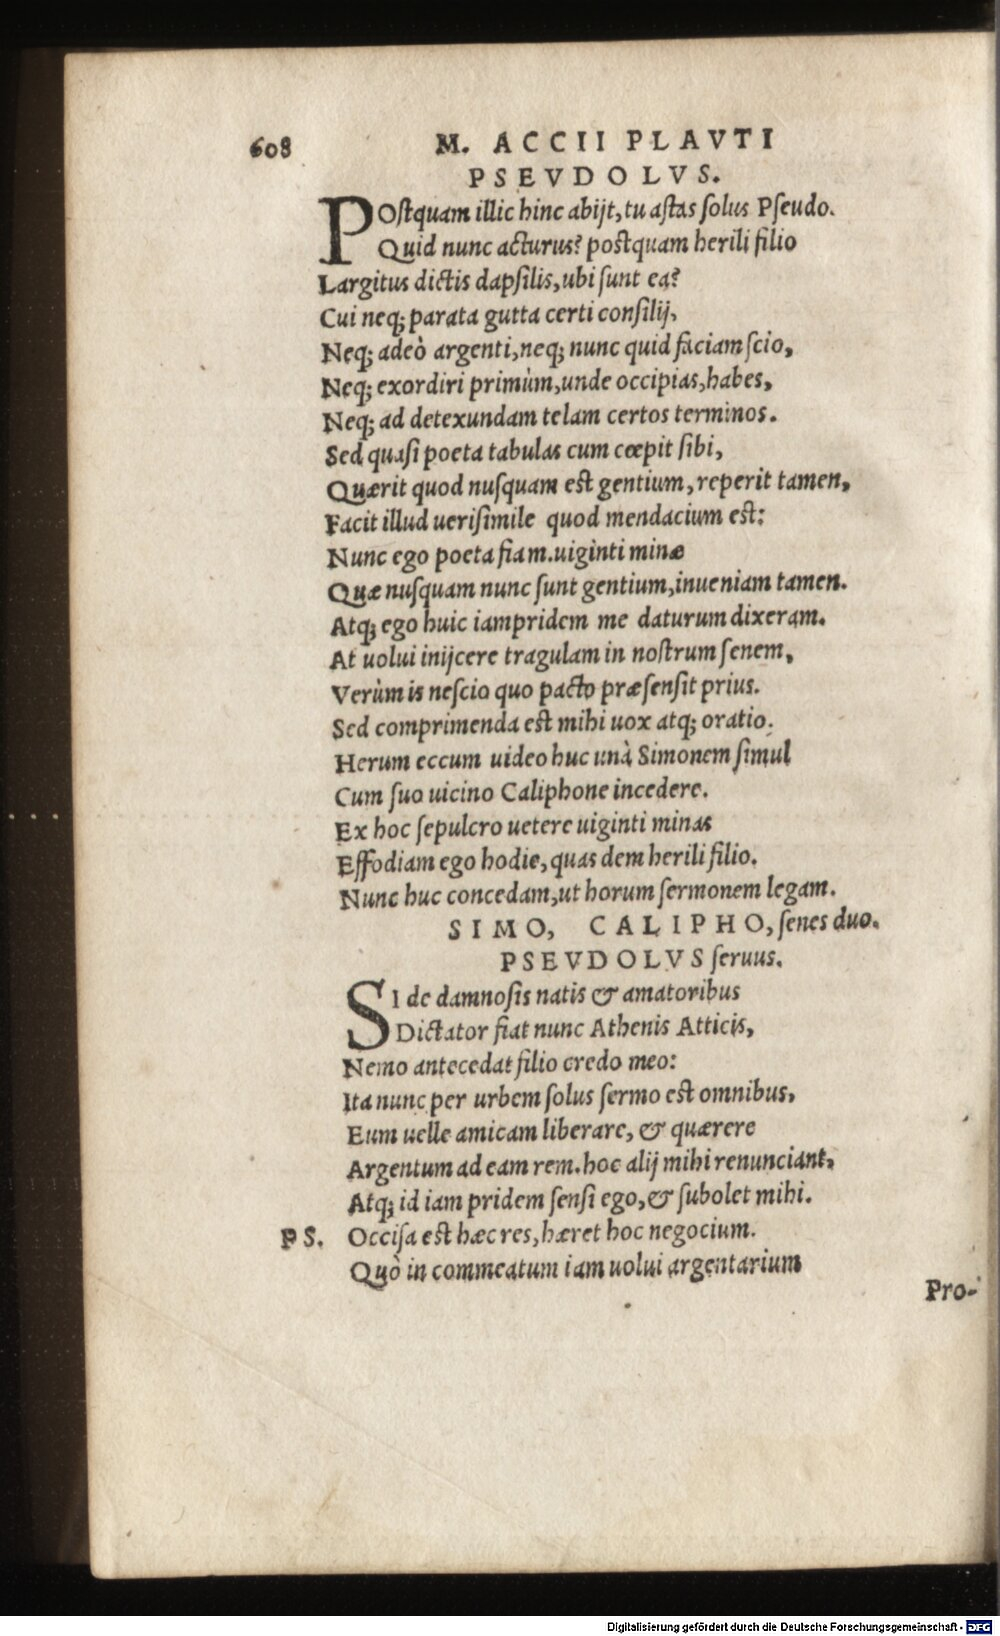 608 M. ACCII PLAVTI
PSEVDOLVS.
POstquam illic hinc abijt, tu astas solus Pseudo.
Quid nunc acturus? postquam herili filio
Largitus dictis dapsilis, ubi sunt ea?
Cui neq; parata gutta certi consilij,
Neq; adeò argenti, neq; nunc quid faciam scio,
Neq; exordiri primùm, unde occipias, habes,
Neq; ad detexundam telam certos terminos.
Sed quasi poeta tabulas cum cœpit sibi,
Quærit quod nusquam est gentium, reperit tamen,
Facit illud uerisimile quod mendacium est:
Nunc ego poeta fiam. uiginti minæ
Quæ nusquam nunc sunt gentium, inueniam tamen.
Atq; ego huic iampridem me daturum dixeram.
At uolui inijcere tragulam in nostrum senem,
Verùm is nescio quo pacto præsensit prius.
Sed comprimenda est mihi uox atq; oratio.
Herum eccum uideo huc unà Simonem simul
Cum suo uicino Caliphone incedere.
Ex hoc sepulcro uetere uiginti minas
Effodiam ego hodie, quas dem herili filio.
Nunc huc concedam, ut horum sermonem legam.
SIMO, CALIPHO, senes duo.
PSEVDOLVS seruus.
SI de damnosis natis & amatoribus
Dictator fiat nunc Athenis Atticis,
Nemo antecedat filio credo meo:
Ita nunc per urbem solus sermo est omnibus,
Eum uelle amicam liberare, & quærere
Argentum ad eam rem. hoc alij mihi renunciant,
Atq; id iam pridem sensi ego, & subolet mihi.
PS. Occisa est hæc res, hæret hoc negocium.
Quò in commeatum iam uolui argentarium
Pro-
Digitalisierung gefördert durch die Deutsche Forschungsgemeinschaft - DFG